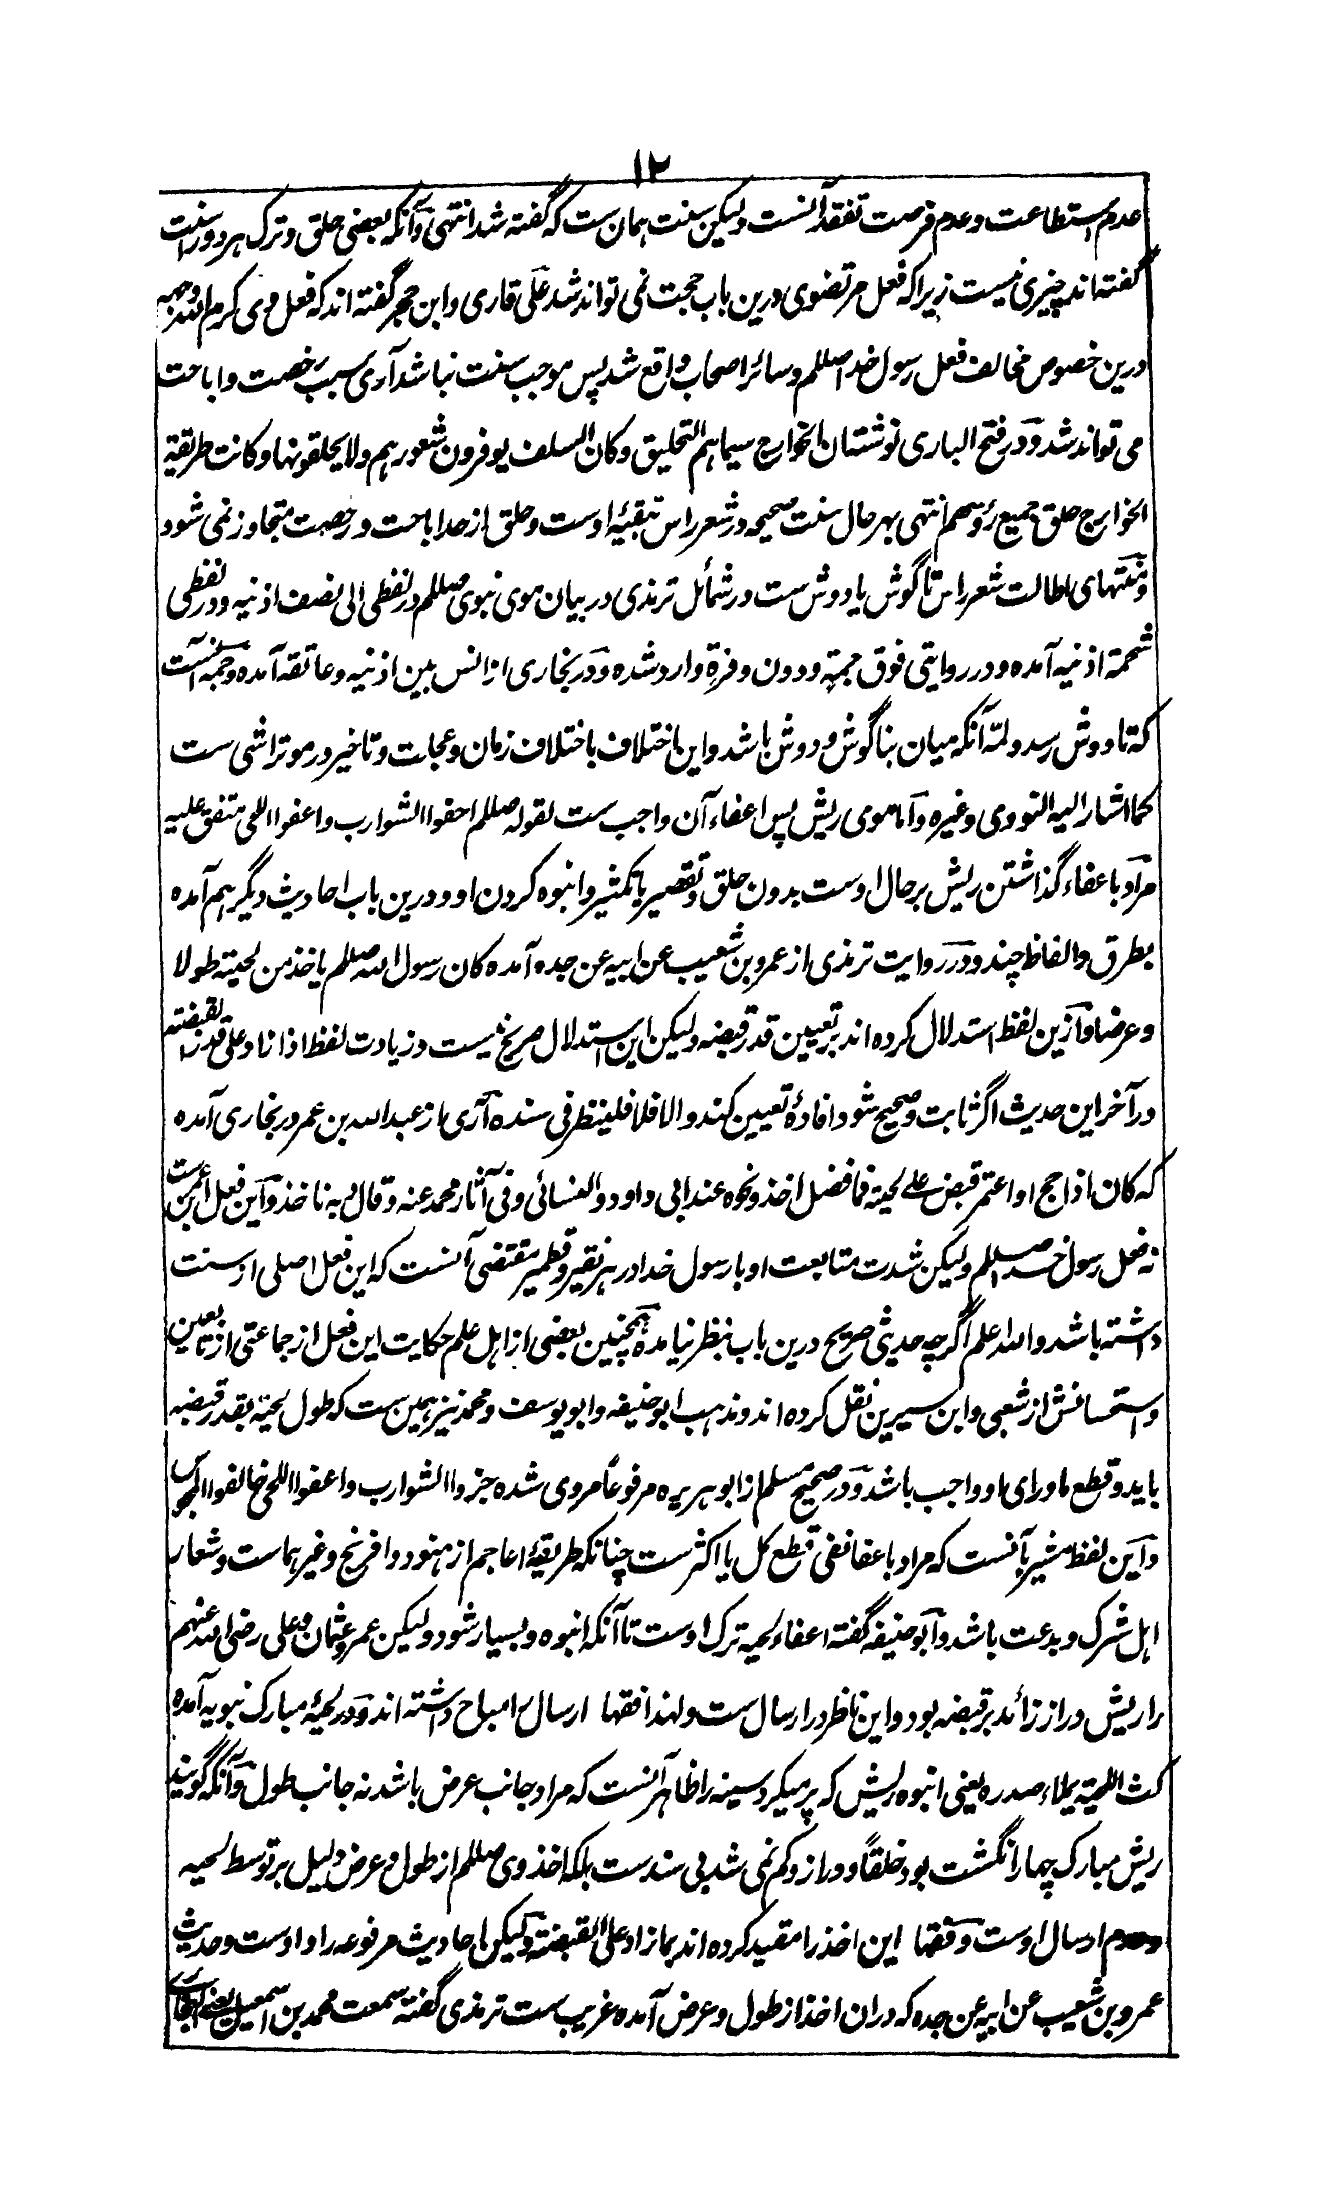 ۱۲
عدم استطاعت و عدم فرصت تفقد آنست ولیکن سنت همان ست که گفته شد انتهی و آنکه بعضی حلق و ترک هر دو را سنت
گفته اند چیزی نیست زیرا که فعل مرتضوی درین باب حجت نمی تواند شد علی قاری و ابن حجر گفته اند که فعل وی کرم الله وجهه
درین خصوص مخالف فعل رسول خدا صللم و سائر اصحاب واقع شد پس موجب سنت نباشد آری سبب رخصت و اباحت
می تواند شد و در فتح الباری نوشته ان الخوارج سیماهم التحلیق و کان السلف یوفرون شعورهم ولا یحلقونها و کانت طریقة
الخوارج حلق جمیع رؤسهم انتهی بهر حال سنت صحیحه در شعر راس تبقیۀ اوست و حلق از حد اباحت و رخصت متجاوز نمی شود
و منتهای اطالت شعر راس تا گوش یا دوش ست در شمائل ترمذی در بیان موی نبوی صللم در لفظی الی نصف اذنیه و در لفظی
شحمة اذنیه آمده و در روایتی فوق جمة و دون وفرة وارد شده و در بخاری از انس بین اذنیه و عاتقه آمده و جمه آنست
که تا دوش رسد و لمه آنکه میان بناگوش و دوش باشد و این اختلاف باختلاف زمان و عجلت و تاخیر در موتراشی ست
کما اشار الیه النووی و غیره و اما موی ریش پس اعفاء آن واجب ست لقوله صللم احفوا الشوارب و اعفوا اللحی متفق علیه
مراد باعفاء گذاشتن ریش بر حال اوست بدون حلق و تقصیر یا تکثیر و انبوه کردن او و درین باب احادیث دیگر هم آمده
بطرق و الفاظ چند و در روایت ترمذی از عمرو بن شعیب عن ابیه عن جده آمده کان رسول الله صللم یاخذ من لحیته طولا
و عرضا و ازین لفظ استدلال کرده اند بر تعیین قدر قبضه ولیکن این استدلال صریح نیست و زیادت لفظ اذا زاد علی قدر القبضة
در آخر این حدیث اگر ثابت و صحیح شود افادۀ تعیین کند و الا فلا فلینظر فی سنده آری از عبد الله بن عمر در بخاری آمده
که کان اذا حج او اعتمر قبض علی لحیته فما فضل اخذ و نحوه عند ابی داود و النسائی و فی آثار محمد عنه و قال و به ناخذ و این فعل ابن عمرست
نه فعل رسول خدا صللم ولیکن شدت متابعت او با رسول خدا در هر نقیر و قطمیر مقتضی آنست که این فعل اصلی از سنت
داشته باشد و الله اعلم اگرچه حدیثی صریح درین باب بنظر نیامده و همچنین بعضی از اهل علم حکایت این فعل از جماعتی از تابعین
و استحسانش از شعبی و ابن سیرین نقل کرده اند و مذهب ابو حنیفه و ابو یوسف و محمد نیز همین ست که طول لحیة بقدر قبضه
باید و قطع ماورای او واجب باشد و در صحیح مسلم از ابو هریره مرفوعاً مروی شده جزوا الشوارب و اعفوا اللحی خالفوا المجوس
و این لفظ مشیر بآنست که مراد باعفا نفی قطع کل یا اکثرست چنانکه طریقۀ اعاجم از هنود و افرنج و غیرهماست و شعار
اهل شرک و بدعت باشد و ابو حنیفه گفته اعفاء لحیه ترک اوست تا آنکه انبوه و بسیار شود ولیکن عمر و عثمان و علی رضی الله عنهم
را ریش دراز زائد بر قبضه بود و این ناظر در ارسال ست و لهذا فقها ارسال را مباح داشته اند و در لحیۀ مبارک نبویه آمده
کث اللحیة یملاء صدره یعنی انبوه ریش که پر میکرد سینه را ظاهر آنست که مراد جانب عرض باشد نه جانب طول و آنکه گویند
ریش مبارک چهار انگشت بود خلقاً و دراز و کم نمی شد بی سندست بلکه اخذ وی صللم از طول و عرض دلیل بر توسط لحیه
و عدم ارسال اوست و فقها این اخذ را مقید کرده اند بما زاد علی القبضة ولیکن احادیث مرفوعه راد اوست و حدیث
عمرو بن شعیب عن ابیه عن جده که دران اخذ از طول و عرض آمده غریب ست ترمذی گفته سمعت محمد بن اسمعیل یعنی البخاری